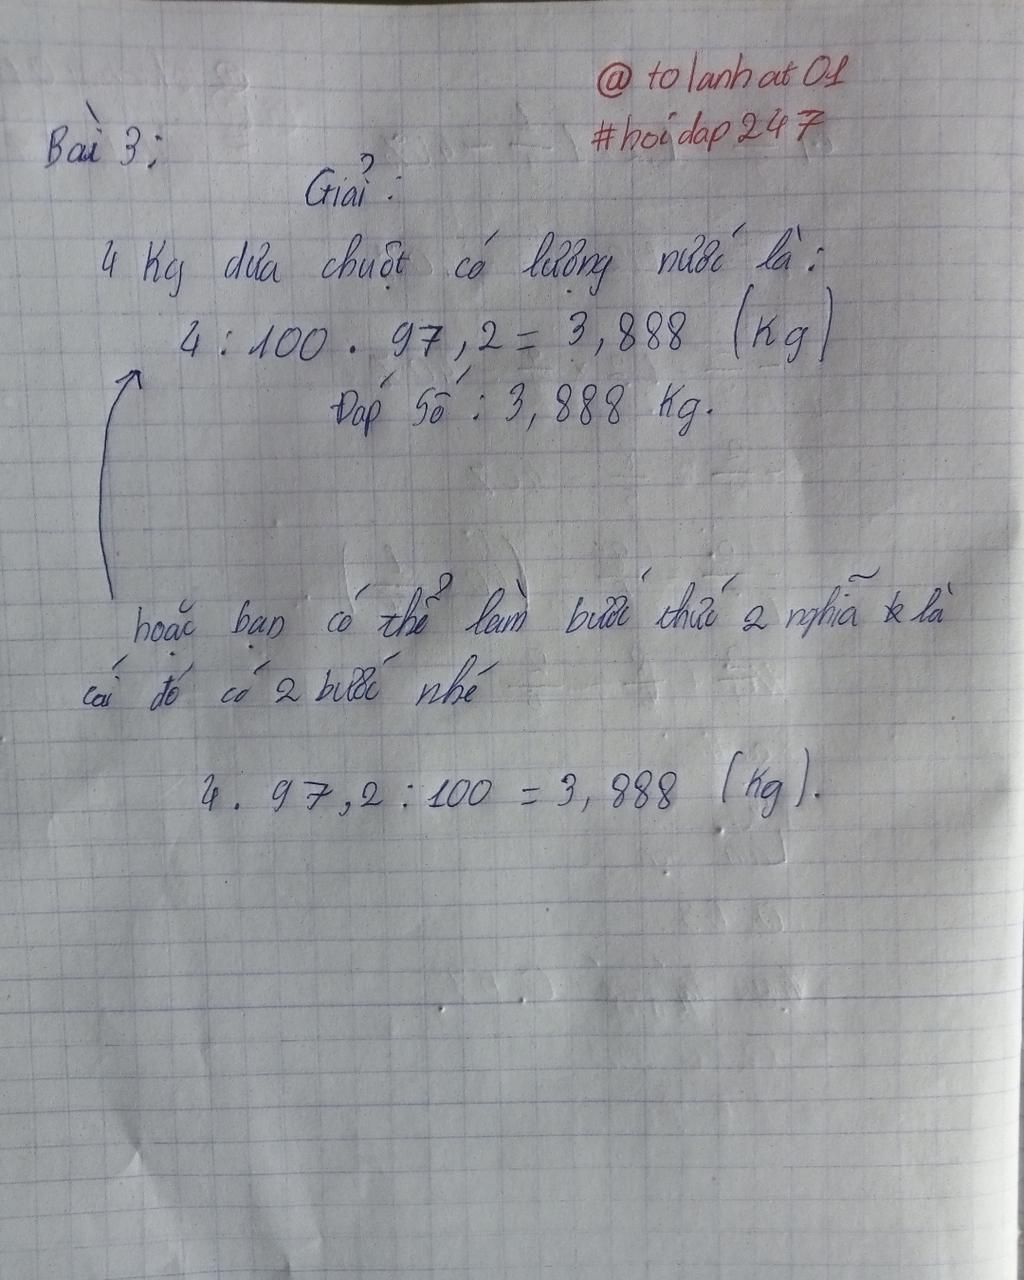 @ tolanhat01
#hoidap247
Bài 3:
Giải:
4 Kg dưa chuột có lượng nước là:
4 : 100 . 97,2 = 3,888 (Kg)
Đáp số : 3,888 Kg.
hoặc bạn có thể làm bước thứ 2 nghĩa là
cái đó có 2 bước nhé
4 . 97,2 : 100 = 3,888 (Kg).